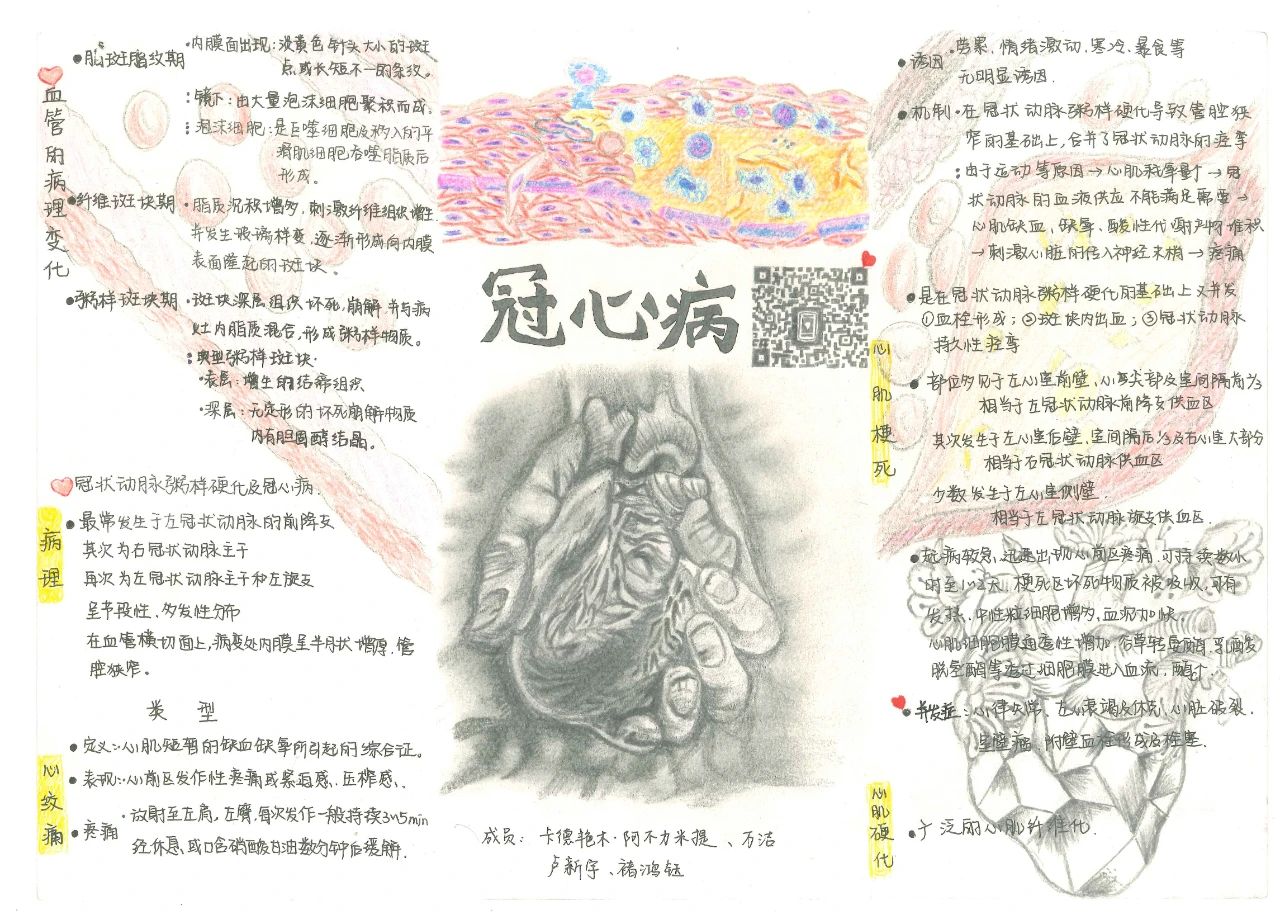 血管的病理变化
脂斑脂纹期
内膜面出现：淡黄色针头大小的斑
点或长短不一的条纹。
镜下：由大量泡沫细胞聚积而成。
泡沫细胞：是巨噬细胞及移入的平
滑肌细胞吞噬脂质后
形成。
纤维斑块期
脂质沉积增多，刺激纤维组织增生
并发生玻璃样变，逐渐形成向内膜
表面隆起的斑块。
粥样斑块期
斑块深层组织坏死，崩解，并与病
灶内脂质混合，形成粥样物质。
典型粥样斑块
表层：增生的结缔组织
深层：无定形的坏死崩解物质
内有胆固醇结晶。
冠状动脉粥样硬化及冠心病．
病理
最常发生于左冠状动脉的前降支
其次为右冠状动脉主干
再次为左冠状动脉主干和左旋支
呈节段性、多发性分布
在血管横切面上，病变处内膜呈半月状增厚．管
腔狭窄。
类 型
心绞痛
定义：心肌短暂的缺血缺氧所引起的综合证。
表现：心前区发作性疼痛或紧迫感、压榨感、
疼痛
放射至左肩，左臂，每次发作一般持续3~5min
经休息，或口含硝酸甘油数分钟后缓解．
冠心病
成员： 卡德艳木·阿不力米提 、万洁
卢新宇 、褚鸿钰
诱因
劳累、情绪激动、寒冷、暴食等
无明显诱因．
机制
在冠状动脉粥样硬化导致管腔狭
窄的基础上，合并了冠状动脉的痉挛
由于运动等原因→心肌耗氧量↑→冠
状动脉的血液供应不能满足需要→
心肌缺血，缺氧，酸性代谢产物堆积
→刺激心脏的传入神经末梢→疼痛
心肌梗死
是在冠状动脉粥样硬化的基础上又并发
①血栓形成；②斑块内出血；③冠状动脉
持久性痉挛
部位多见于左心室前壁，心尖部及室间隔前⅔
相当于左冠状动脉前降支供血区
其次发生于左心室后壁，室间隔后⅓及右心室大部分
相当于右冠状动脉供血区
少数发生于左心室侧壁
相当于左冠状动脉旋支供血区．
起病较急，迅速出现心前区疼痛，可持续数小
时至1~2天，梗死区坏死物质被吸收，可有
发热、中性粒细胞增多，血沉加快
心肌细胞膜通透性增加 谷草转氨酶，乳酸
脱氢酶等透过细胞膜进入血流，酶↑．
并发症：心律失常、左心衰竭及休克、心脏破裂．
室壁瘤、附壁血栓形成及栓塞．
心肌硬化
广泛的心肌纤维化．